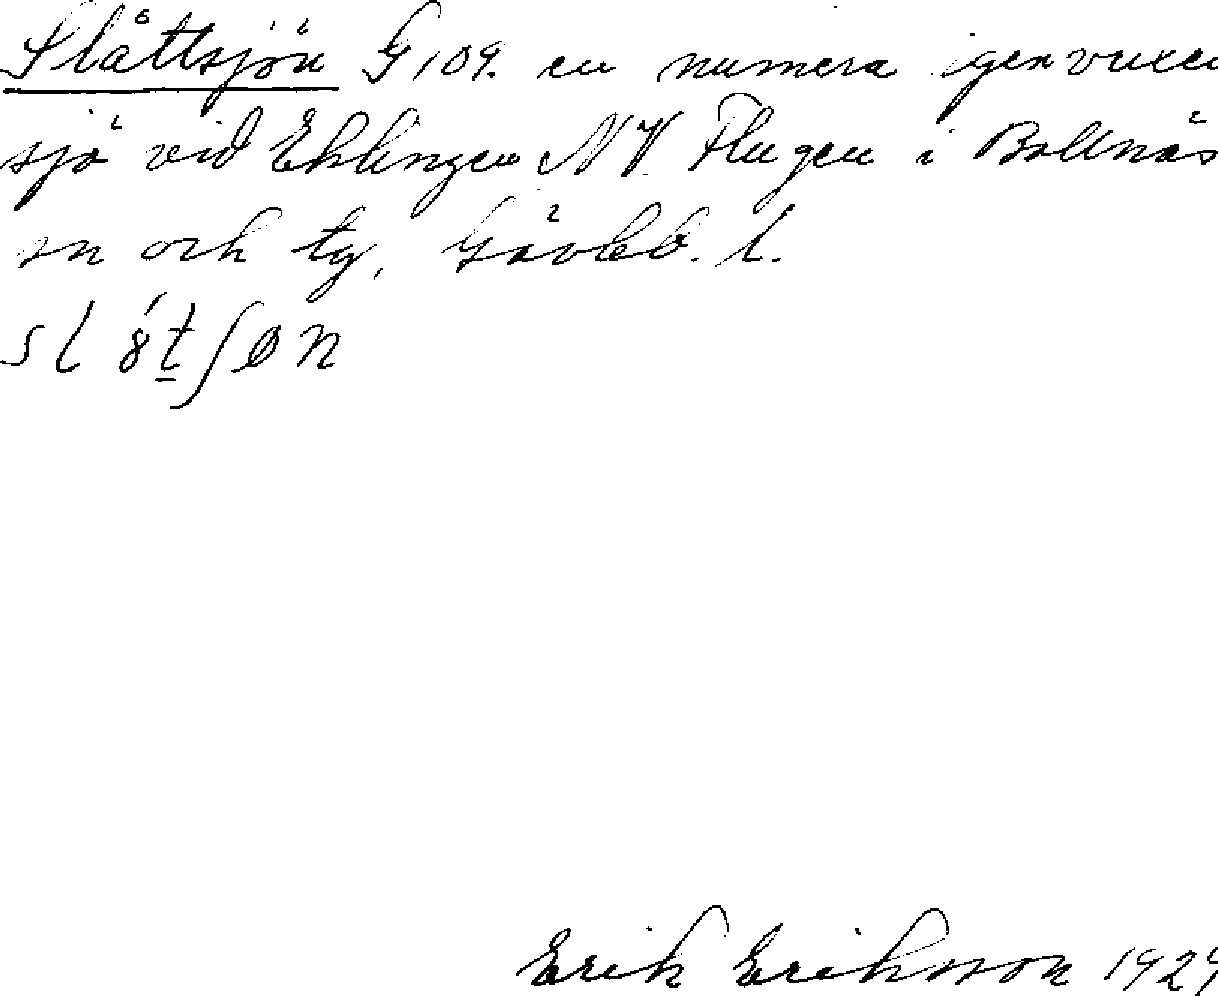 Slåttsjön G 109. en numera igenvuxen
sjö vid Ehlingen NV. Flugen i Bollnäs
sn och tg, Gävleb. l.
sl ótʃøn
Erik Eriksson 1929